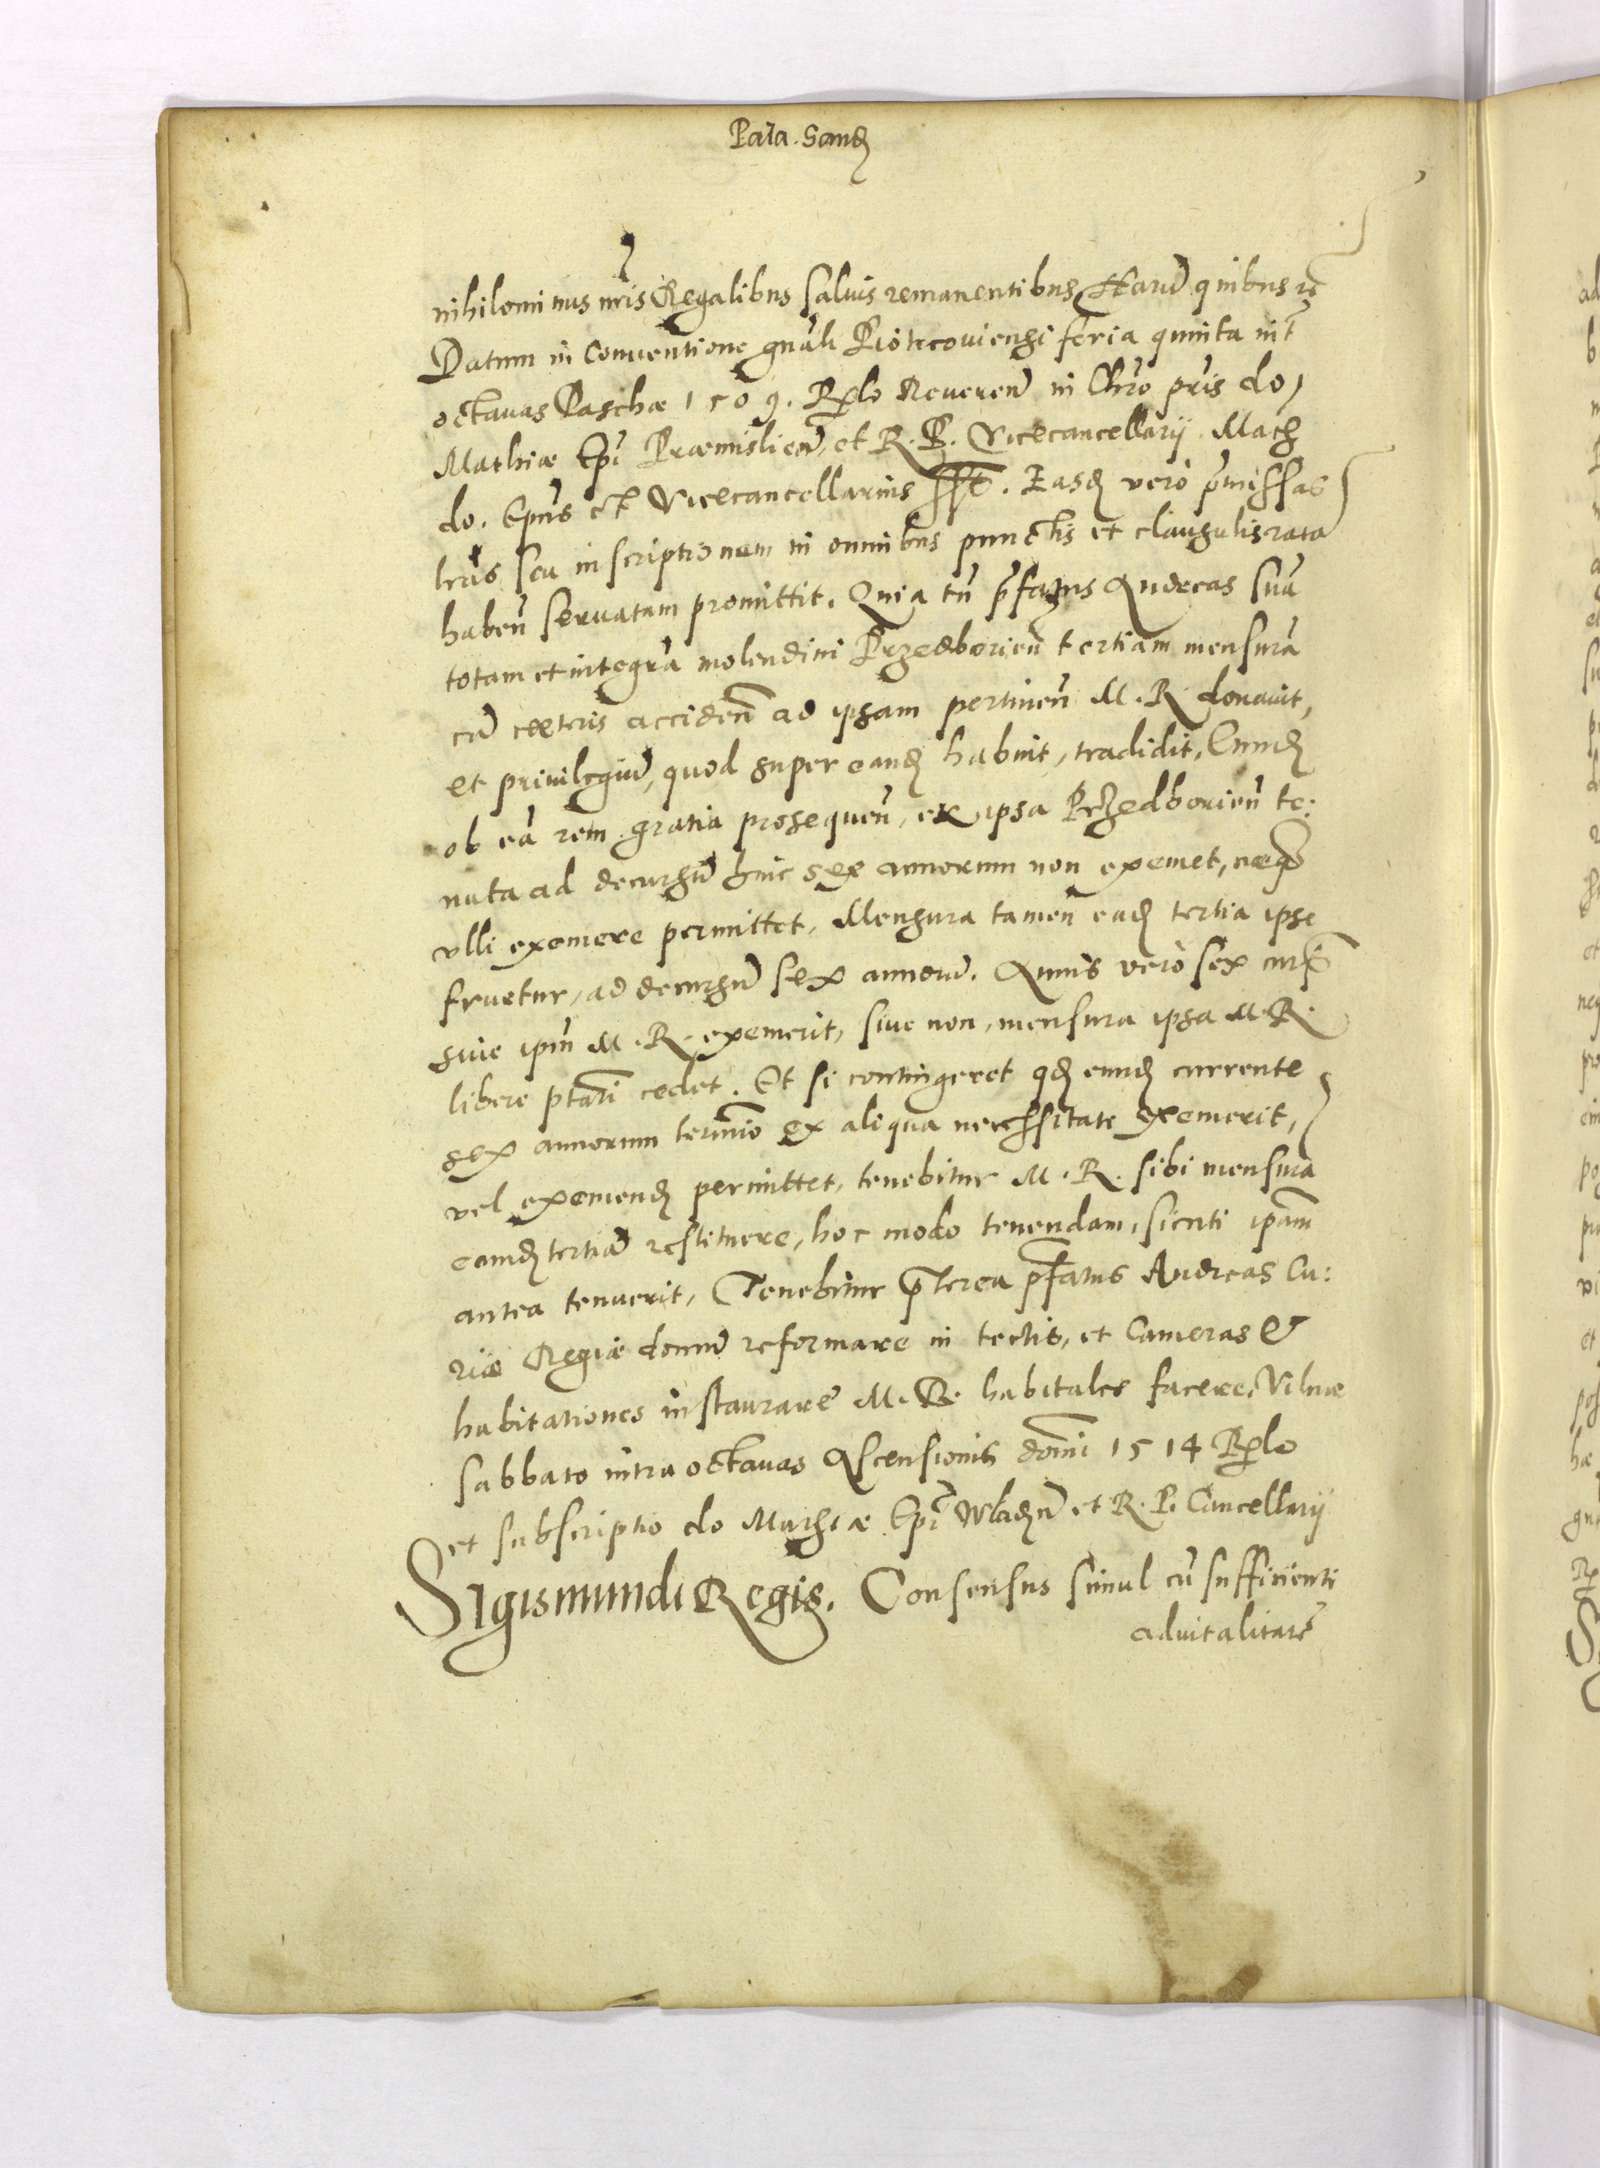 Pala. Sand
nihilominus nris Regalibus salvis remanentibus Harū quibus rc
Datum in Conventione gnāli Piotrcoviensi feria quinta int
octavas Paschæ 1509. Rlo Reverenā in Chro pris do,
Mathiæ Epi Præmislien, et R. P. Vicecancellarij. Math
do. Epus et Vicecancellarius sst. Easd vero pmissas
lrās seu inscriptionem in omnibus punctis et clausulis rata
haben servatam promittit. Quia tn pfatus Andreas suā
totam et integrā molendini Przedborien tertiam mensurā
cū cæteris acciden ad ipsam pertinen M. R. donavit,
et privilegiū, quod super eand habuit, tradidit, Eund
ob eā rem gratia prosequen, ex ipsa Przedborien te:
nuta ad decursū huic sex annorum non exemet, neq
ulli exemere permittet, Mensura tamen ead tertia ipse
fruetur, ad decursū sex annorū. Annis vero sex
sive ipm M. R. exemerit, sive non, mensura ipsa M. R.
libere ptati cedet. Et si contingeret qd eund currente
sex annorum termīo ex aliqua necessitate exemerit,
vel exemend permittet, tenebitur M. R. sibi mensurā
eamd tertiā restituere, hoc modo tenendam, sicuti ipam
antea tenuerit, Tenebitur pterea pfatus Andreas Cu:
riæ Regiæ domū reformare in tectis, et Cameras &
habitationes instaurare M. R. habitales facere. Vilnæ
sabbato intra octavas Ascensionis domi 1514 Rlo
et subscriptio do Mathiæ Epi Wladn et R. P. Cancellarij
Sigismundi Regis. Consensus simul cū sufficienti
advitalitate